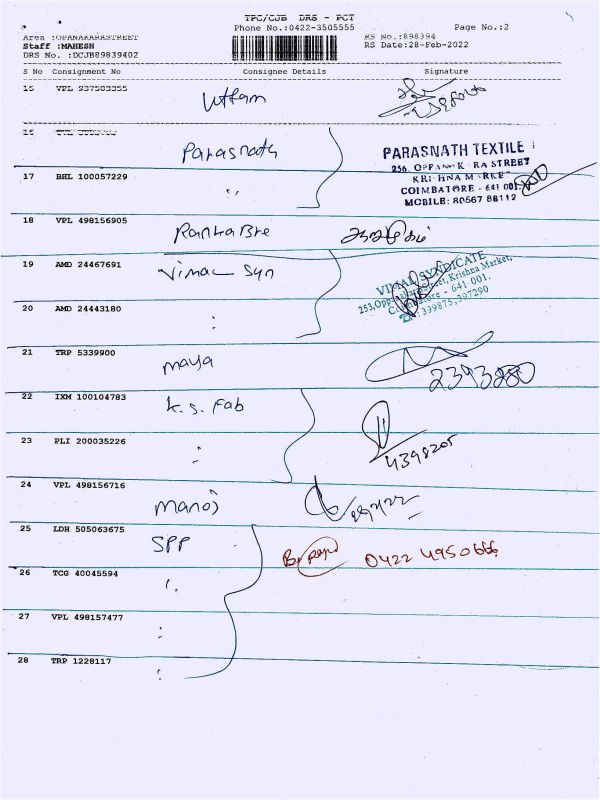 TPC/CJB DRS - PCT
Phone No.:0422-3505555 Page No.:2
Area :OPANAKARASTREET RS No.:898394
Staff :MAHESH RS Date:28-Feb-2022
DRS No. :DCJB89839402
S No Consignment No Consignee Details Signature
15 VPL 937503355 Uttam
16 Parasnath
PARASNATH TEXTILE
STREET
COIMBATORE - 641 001
MOBILE: 80567 88112
17 BHL 100057229 "
18 VPL 498156905
19 AMD 24467691 Vimal Syn
VIMAL SYNDICATE
Street, Krishna Market,
Coimbatore - 641 001.
20 AMD 24443180 :
21 TRP 5339900 maya
22 IXM 100104783 K.S. Fab
23 PLI 200035226 :
4398205
24 VPL 498156716 manoj
25 LDH 505063675 SPP
0422 4950666
26 TCG 40045594
27 VPL 498157477 :
28 TRP 1228117 :